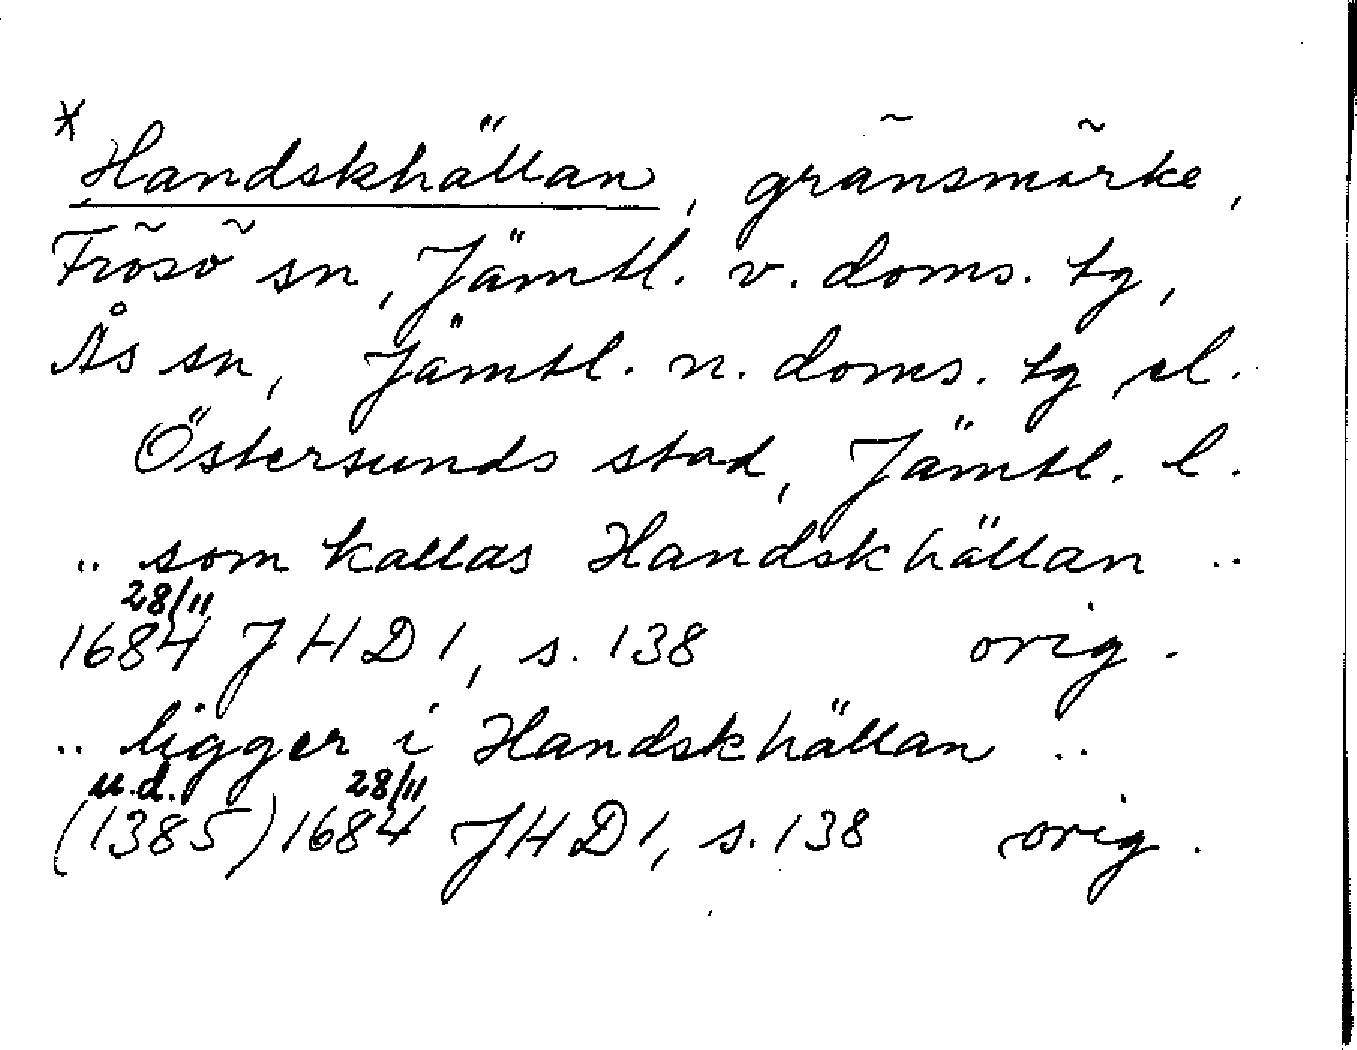 *
Handskhällan, gränsmärke,
Frösö sn, Jämtl. v. doms. tg,
Ås sn, Jämtl. n. doms. tg el.
Östersunds stad, Jämtl. l.
.. som kallas Handskhällan ..
28/11
1684 JHD 1, s. 138 orig.
.. ligger i Handskhällan ..
u.d. 28/11
(1385) 1684 JHD 1, s. 138 orig.